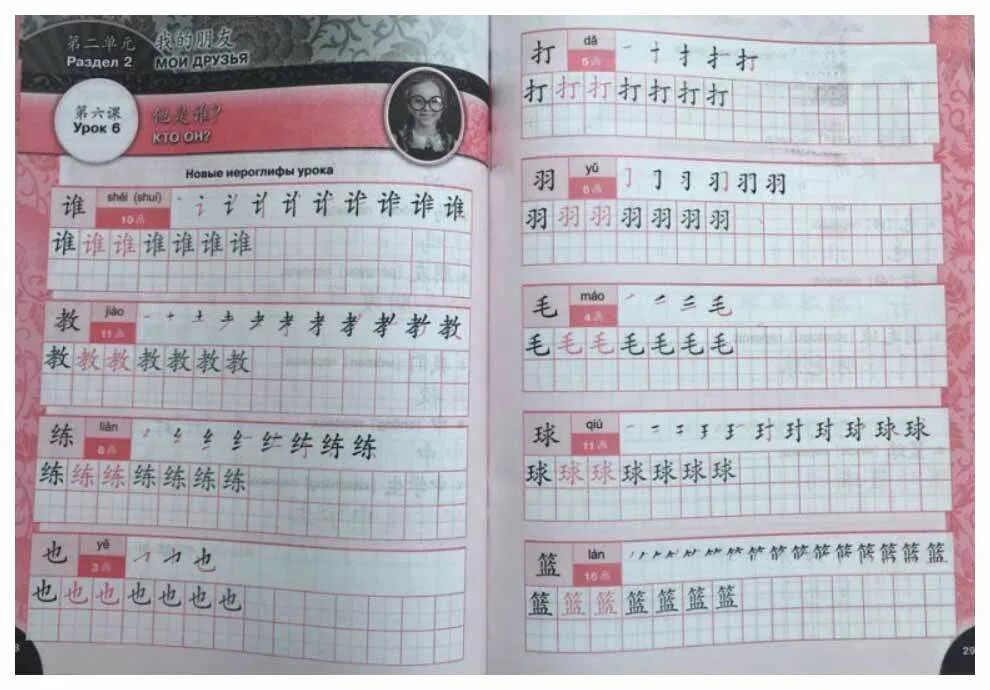 第二单元 我的朋友
Раздел 2 МОИ ДРУЗЬЯ
第六课 他是谁?
Урок 6 КТО ОН?
Новые иероглифы урока
谁 shéi (shuí) 谁
10画
谁 谁 谁 谁 谁 谁 谁
教 jiāo 教
11画
教 教 教 教 教 教 教
练 liàn 练
8画
练 练 练 练 练 练 练
也 yě 也
3画
也 也 也 也 也 也 也
打 dǎ 一 十 扌 打
5画
打 打 打 打 打 打 打
羽 yǔ 羽
6画
羽 羽 羽 羽 羽 羽 羽
毛 máo 毛
4画
毛 毛 毛 毛 毛 毛 毛
球 qiú 球
11画
球 球 球 球 球 球 球
篮 lán 篮
16画
篮 篮 篮 篮 篮 篮 篮
29